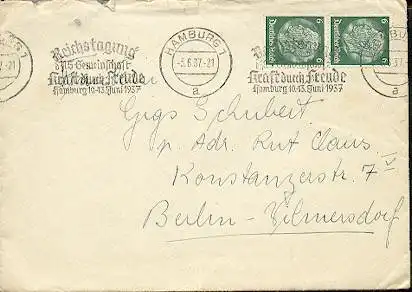 Reichstagung
d. NS Gemeinschaft
Kraft durch Freude
Hamburg 10.-13. Juni 1937
HAMBURG 1
-3.6.37.-21
a
Deutsches Reich
6
Deutsches Reich
6
Kraft durch Freude
Hamburg 10.-13. Juni 1937
Schubert
p. Adr. Rut Claus
Konstanzerstr. 7 V
Berlin-Wilmersdorf